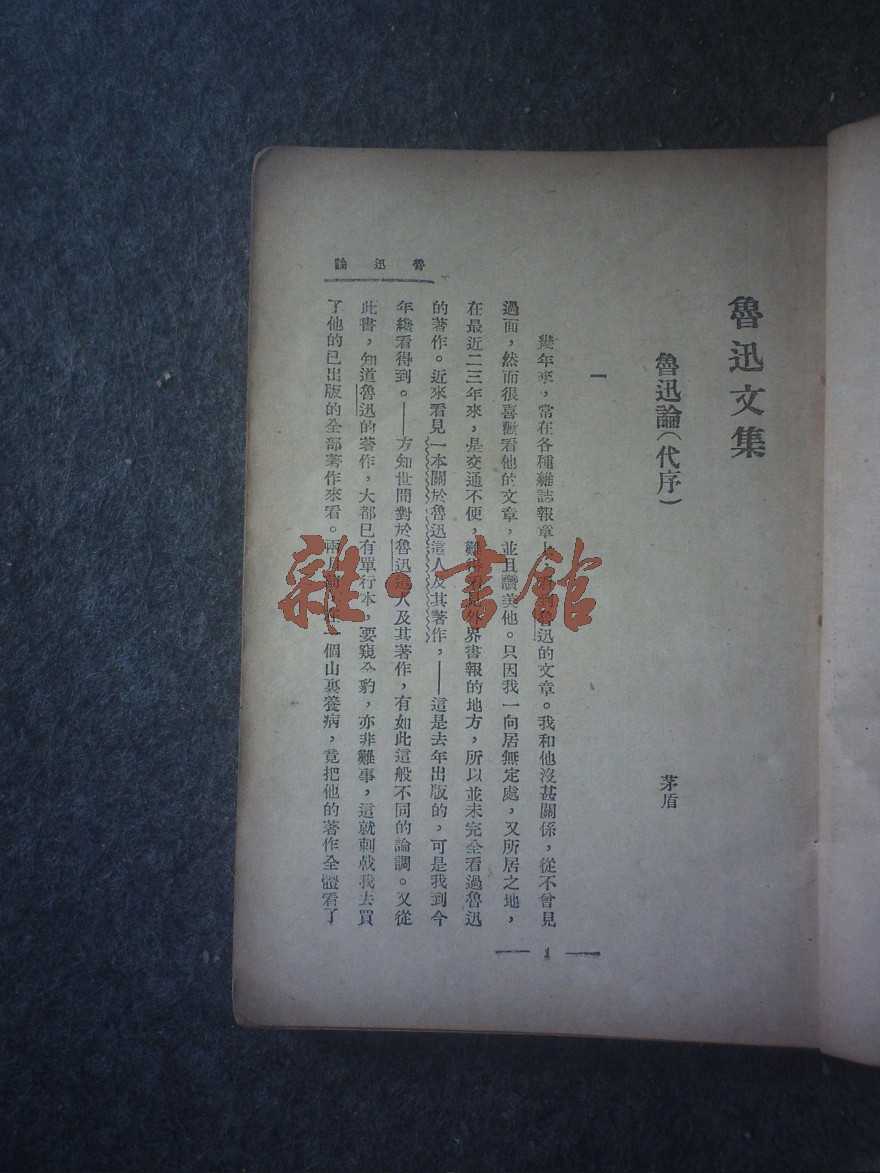 魯迅文集
魯迅論（代序）
茅盾
一
幾年來，常在各種雜誌報章上，魯迅的文章。我和他沒甚關係，從不曾見
過面，然而很喜歡看他的文章，並且讚美他。只因我一向居無定處，又所居之地，
在最近二三年來，是交通不便，難得看見外界書報的地方，所以並未完全看過魯迅
的著作。近來看見一本關於魯迅這人及其著作，——這是去年出版的，可是我到今
年纔看得到。——方知世間對於魯迅這人及其著作，有如此這般不同的論調。又從
此書，知道魯迅的著作，大都已有單行本，要窺全豹，亦非難事，這就刺戟我去買
了他的已出版的全部著作來看。兩月一個山裏養病，竟把他的著作全體看了
魯迅論
1
雜·書館